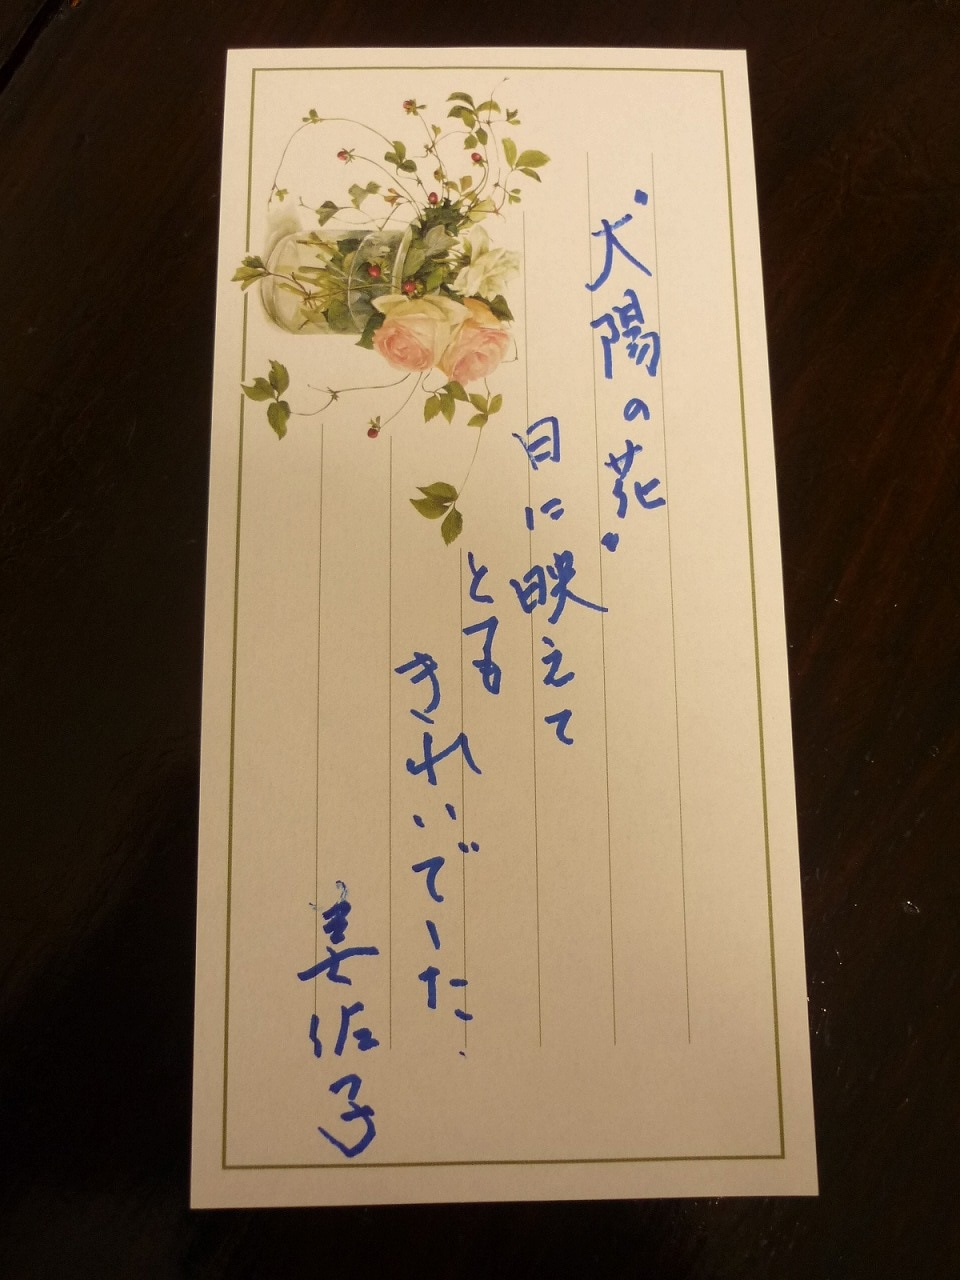 "太陽の花"
日に映えて
とても
きれいでした
美佐子